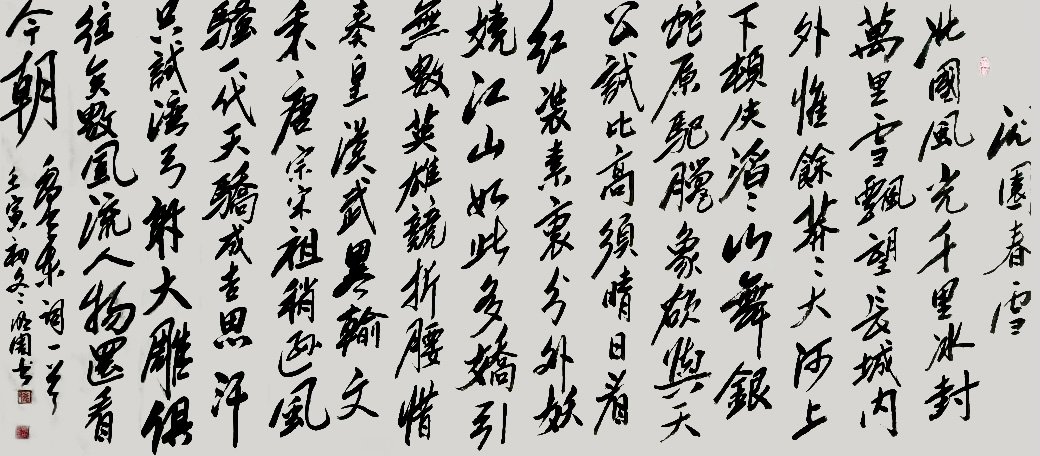 沁園春雪
北國風光千里冰封
萬里雪飄望長城内
外惟餘莽〻大河上
下頓失滔〻山舞銀
蛇原馳臘象欲與天
公試比高須晴日看
紅裝素裹分外妖
嬈江山如此多嬌引
無數英雄競折腰惜
秦皇漢武畧輸文
采唐宗宋祖稍遜風
騷一代天驕成吉思汗
只識彎弓射大雕俱
往矣數風流人物還看
今朝
詞一首
壬寅初冬